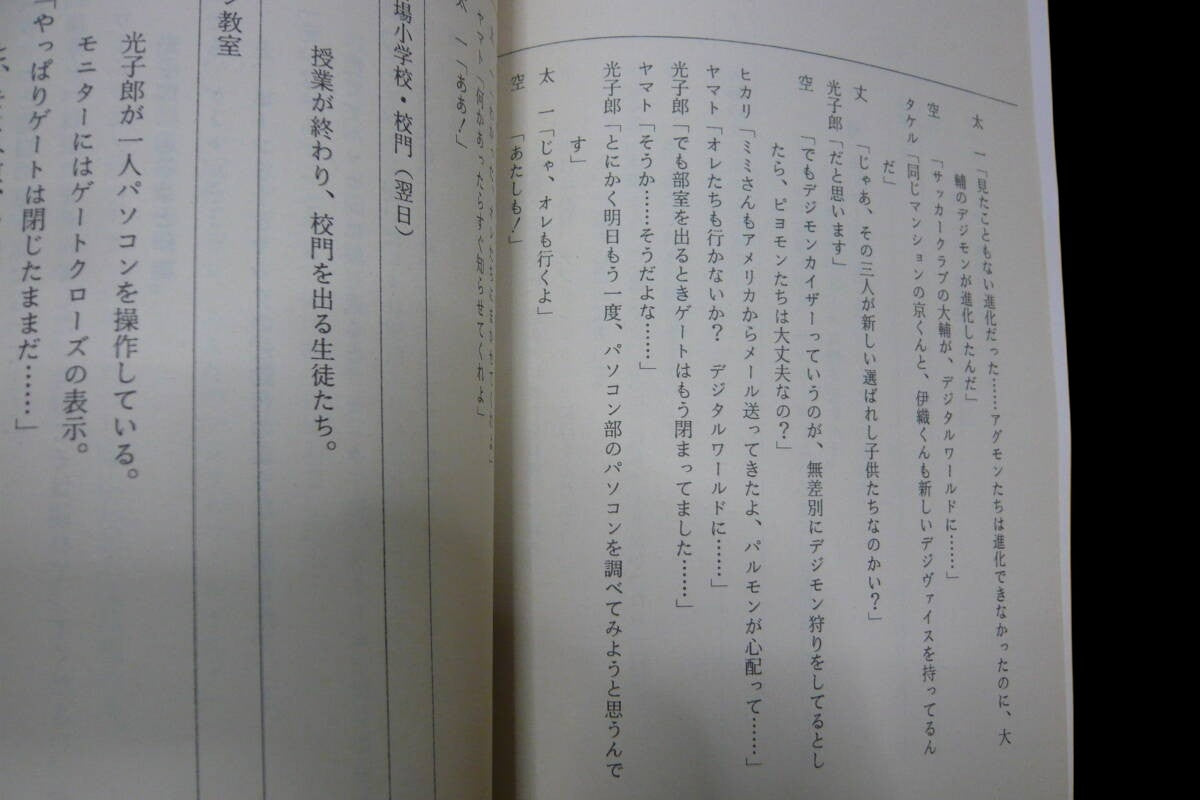 太　一「見たこともない進化だった……アグモンたちは進化できなかったのに、大
輔のデジモンが進化したんだ」
空　　「サッカークラブの大輔が、デジタルワールドに……」
タケル「同じマンションの京くんと、伊織くんも新しいデジヴァイスを持ってるん
だ」
丈　　「じゃあ、その三人が新しい選ばれし子供たちなのかい？」
光子郎「だと思います」
空　　「でもデジモンカイザーっていうのが、無差別にデジモン狩りをしてるとし
たら、ピヨモンたちは大丈夫なの？」
ヒカリ「ミミさんもアメリカからメール送ってきたよ、パルモンが心配って……」
ヤマト「オレたちも行かないか？　デジタルワールドに……」
光子郎「でも部室を出るときゲートはもう閉まってました……」
ヤマト「そうか……そうだよな……」
光子郎「とにかく明日もう一度、パソコン部のパソコンを調べてみようと思うんで
す」
太　一「じゃ、オレも行くよ」
空　　「あたしも！」
ヤマト「何かあったらすぐ知らせてくれよ」
太　一「ああ！」
場小学校・校門（翌日）
授業が終わり、校門を出る生徒たち。
教室
光子郎が一人パソコンを操作している。
モニターにはゲートクローズの表示。
「やっぱりゲートは閉じたままだ……」